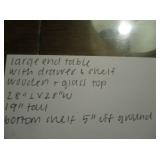 large end table
with drawer & shelf
wooden & glass top
28"L x 28"W
19" tall
bottom shelf 5" off ground